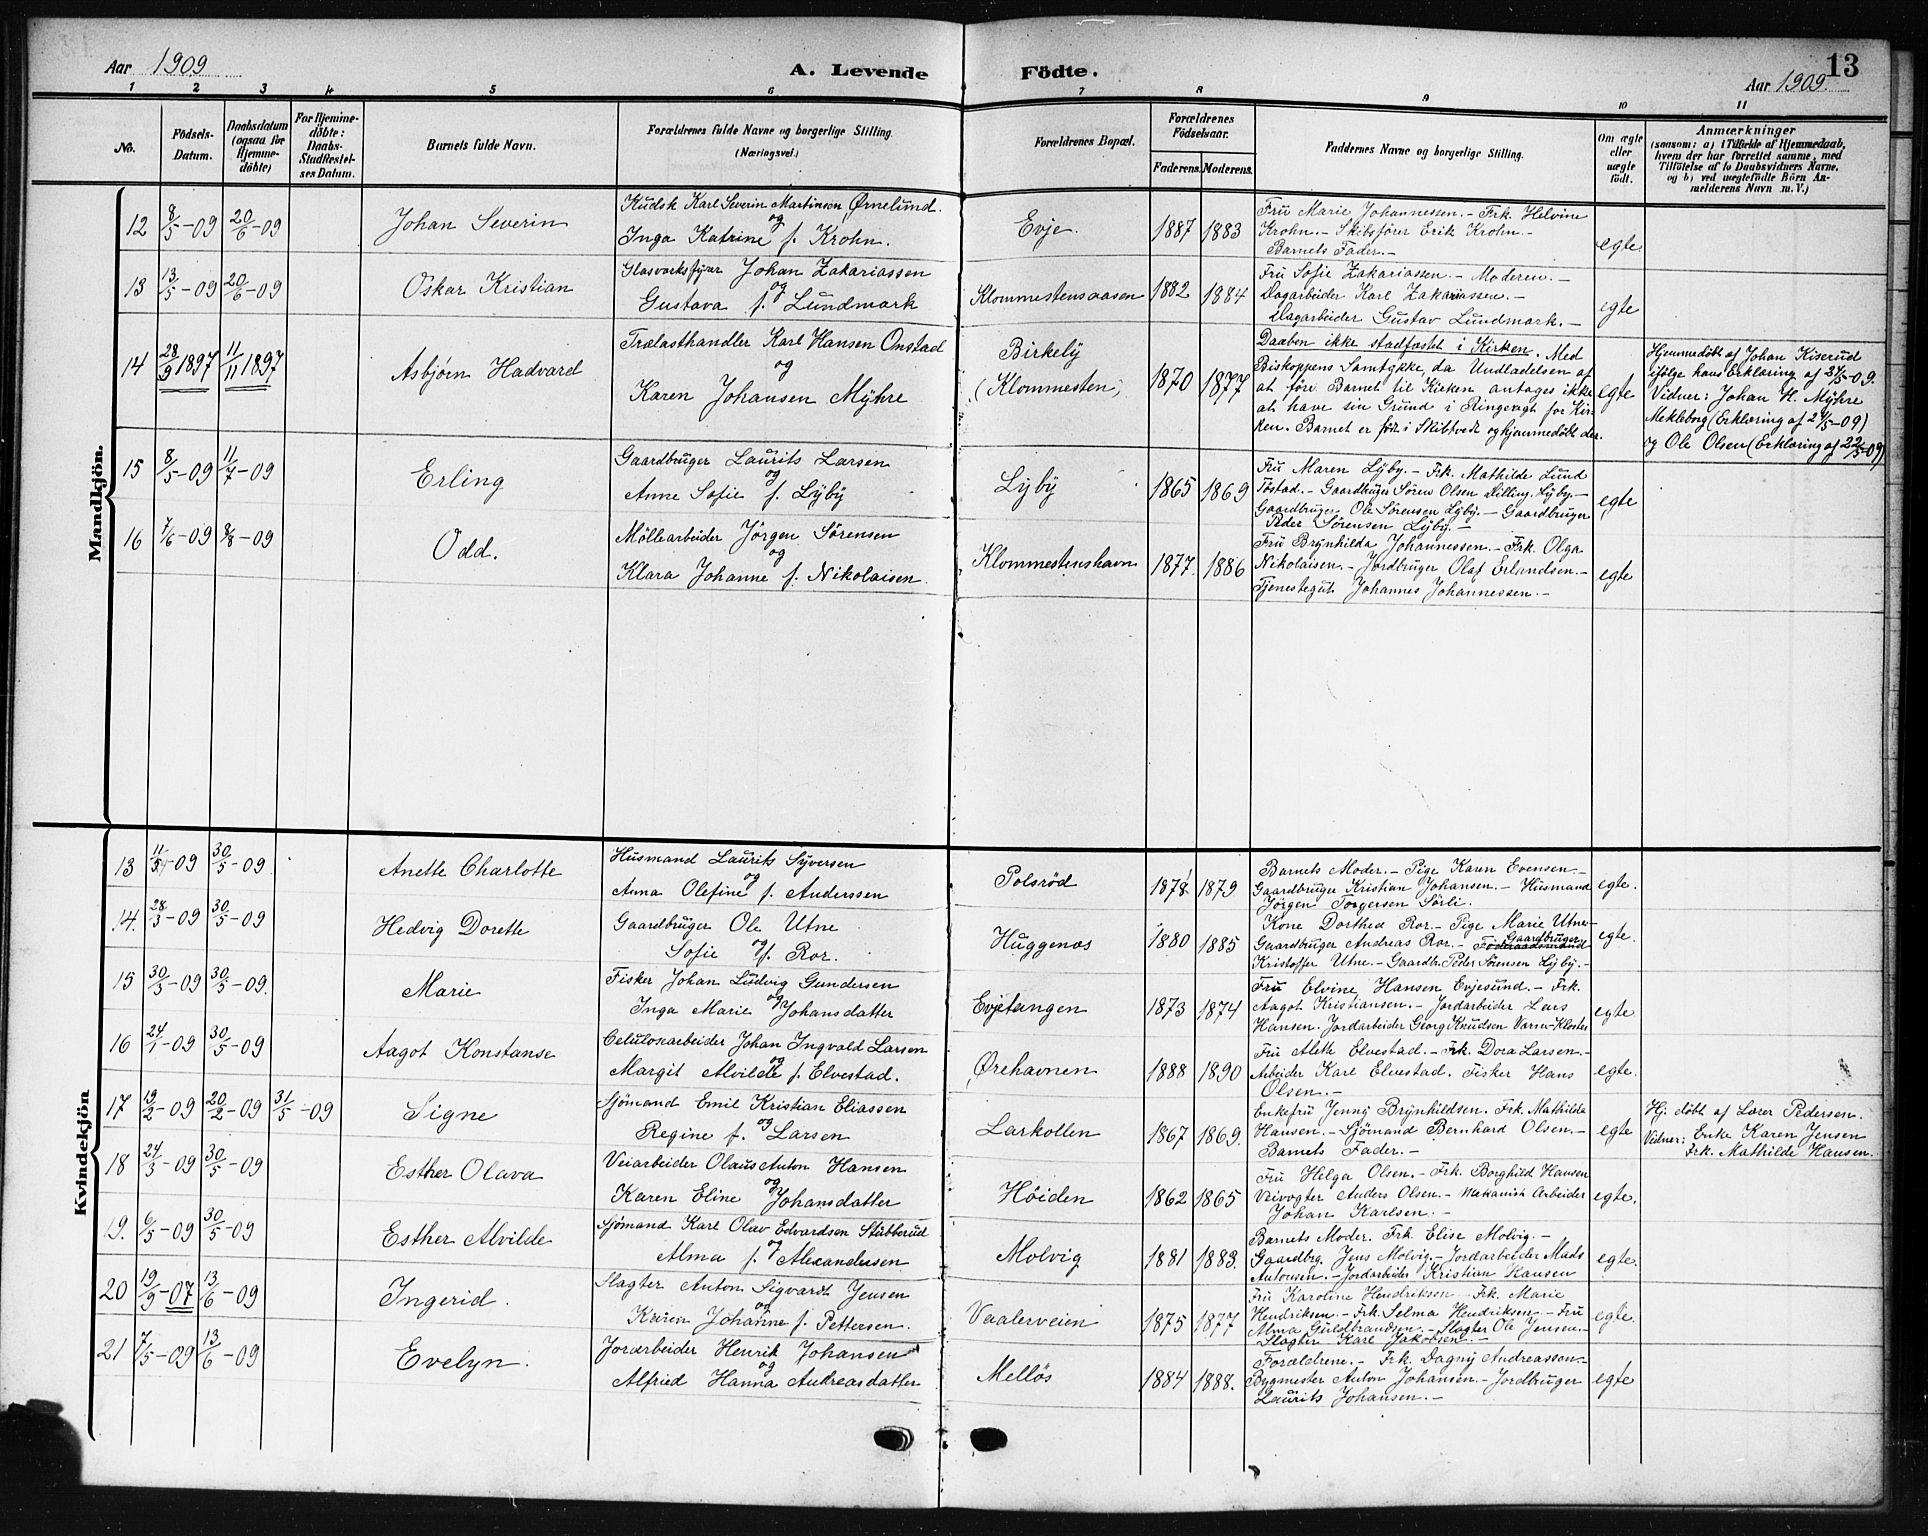 13
Aar 1909 A. Levende Födte. Aar 1909.
1 2 3 4 5 6 7 8 9 10 11
No.
Födsels-
Datum.
Daabsdatum
(ogsaa for
Hjemme-
döbte)
For Hjemme-
döbte:
Daabs-
Stadfæstel-
ses Datum.
Barnets fulde Navn.
Forældrenes fulde Navne og borgerlige Stilling.
(Næringsvei.)
Forældrenes Bopæl.
Forældrenes
Födselsaar.
Faderens. Moderens.
Faddernes Navne og borgerlige Stilling.
Om ægte
eller
uægte
födt.
Anmærkninger
(saasom: a) i Tilfælde af Hjemmedaab,
hvem der har forrettet samme, med
Tilföielse af to Daabsvidners Navne,
og b) ved uægtefödte Börn An-
melderens Navn m. V.)
Mandkjön.
12 8/5-09 20/6-09 Johan Severin
Kudsk Karl Severin Martinsen Ørnelund.
og
Inga Katrine f. Krohn.
Evje. 1887 1883
Fru Marie Johannessen. - Frk. Helvine
Krohn. - Skibsfører Erik Krohn. -
Barnets Fader. -
egte
13 13/5-09 20/6-09 Oskar Kristian
Glasværksfyrer Johan Zakariassen
og
Gustava f. Lundmark
Klommestensaasen 1882 1884
Fru Sofie Zakariassen. - Moderen. -
Dagarbeider Karl Zakariassen. -
Dagarbeider Gustav Lundmark. -
egte
14 28/9 1897 11/11 1897 Asbjørn Hadvard
Trælasthandler Karl Hansen Onstad
og
Karen Johansen Myhre
Birkely
(Klommesten) 1870 1877
Daaben ikke stadfæstet i Kirken. Med
Biskoppens Samtykke, da Undladelsen af
at føre Barnet til Kirken antages ikke
at have sin Grund i Ringeagt for Kir-
ken. Barnet er født i Skibtvedt og hjemmedøbt der.
egte
Hjemmedøbt af Johan Kiserud
ifølge hans Erklæring af 27/5-09.
Vidner: Johan H. Myhre
Mekleborg (Erklæring af 24/5-09)
og Ole Olsen (Erklæring af 22/5-09)
15 8/5-09 11/7-09 Erling
Gaardbruger Laurits Larsen
og
Anne Sofie f. Lyby
Lyby 1865 1869
Fru Maren Lyby. - Frk. Mathilde Lund
Tostad. - Gaardbruger Søren Olsen Dilling. Lyby. -
Gaardbruger Ole Sørensen Lyby. - Gaardbruger
Peder Sørensen Lyby. -
egte
16 7/6-09 8/8-09 Odd.
Möllearbeider Jörgen Sörensen
og
Klara Johanne f. Nikolaisen.
Klommestenshavn 1877. 1886
Fru Brynhilda Johannessen. - Frk. Olga
Nikolaisen. - Jordbruger Olaf Erlandsen. -
Tjenestegut Johannes Johannessen. -
egte
Kvindekjön
13 11/3-09 30/5-09 Anette Charlotte
Husmand Laurits Syversen
og
Anna Olefine f. Anderssen
Polsröd 1878 1879
Barnets Moder. - Pige Karen Evensen. -
Gaardbruger Kristian Johansen. - Husmand
Jörgen Torgersen Sörli.
egte.
14. 28/3-09 30/5-09 Hedvig Dorette
Gaardbruger Ole Utne
og
Sofie f. Ror.
Huggenes 1880 1885
Kone Dorthea Ror. - Pige Marie Utne -
Gaardbruger Andreas Ror. - Föderaadsmand Gaardbruger
Kristoffer Utne. - Gaardb. Peder Sörensen Lyby. -
egte.
15 30/3-09 30/5-09. Marie
Fisker Johan Ludvig Gundersen
og
Inga Marie Johansdatter
Evjetangen 1873 1874
Fru Elvine Hansen Evjesund. - Frk.
Aagot Kristiansen. - Jordarbeider Lars
Hansen. Jordarbeider Georg Knudsen Varne-Kloster
egte
16 24/1-09 30/5-09 Aagot Konstanse
Celulosearbeider Johan Ingvald Larsen
og
Margit Alvilde f. Elvestad.
Ørehavnen 1888 1890
Fru Alette Elvestad. - Frk. Dora Larsen. -
Arbeider Karl Elvestad. Fisker Hans
Olsen. -
egte.
17 19/2-09 20/2-09 31/5-09 Signe
Sjömand Emil Kristian Eliassen
og
Regine f. Larsen
Larkollen 1867 1869.
Enkefru Jenny Brynhildsen. Frk. Mathilde
Hansen. - Sjömand Bernhard Olsen. -
Barnets Fader. -
egte
Hj. döbt af Lærer Pedersen.
Vidner: Enke Karen Jensen
Frk. Mathilde Hansen.
18 24/3-09 30/5-09 Esther Olava
Veiarbeider Olaus Anton Hansen
og
Karen Eline Johansdatter
Höiden 1862 1865
Fru Helga Olsen. - Frk. Borghild Hansen
Veivogter Anders Olsen. - Mekanisk Arbeider
Johan Karlsen. -
egte.
19. 6/5-09 30/5-09 Esther Alvilde
Sjömand Karl Olav Edvardsen Stubberud
og
Alma f. Alexandersen
Molvig 1881 1883.
Barnets Moder. Frk. Elise Molvig. -
Gaardbrg. Jens Molvig. - Jordarbeider Mads
Antonsen. - Jordarbeider Kristian Hansen
egte.
20 19/9-07 13/6-09 Ingerid.
Slagter Anton Sigvardt Jensen
og
Karen Johanne f. Pettersen.
Vaalerveien 1875 1877
Fru Karoline Hendriksen - Frk. Marie
Hendriksen. - Frk. Selma Hendriksen. - Fru
Alma Guldbrandsen. - Slagter Ole Jensen. -
Slagter Karl Jakobsen. -
egte
21 7/5-09 13/6-09 Evelyn.
Jordarbeider Henrik Johansen
og
Alfried Hanna Andreasdatter
Mellös 1884 1888.
Forældrene. - Frk. Dagny Andreassen. -
Bygmester Anton Johansen. - Jordbruger
Laurits Johansen. -
egte